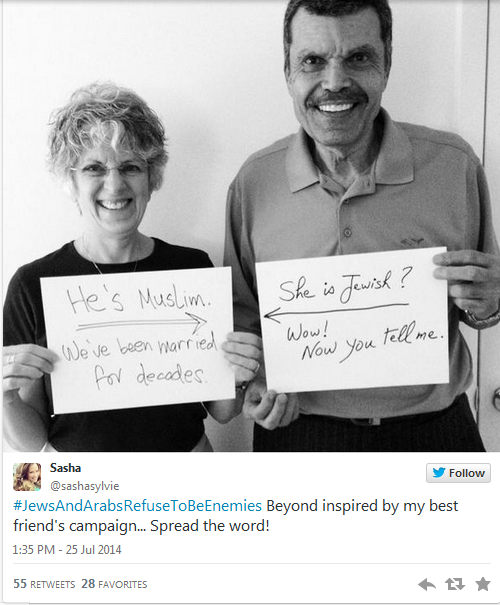 He's Muslim.
We've been married
for decades.
She is Jewish?
Wow!
Now you tell me.
Sasha
@sashasylvie
Follow
#JewsAndArabsRefuseToBeEnemies Beyond inspired by my best
friend's campaign... Spread the word!
1:35 PM - 25 Jul 2014
55 RETWEETS 28 FAVORITES